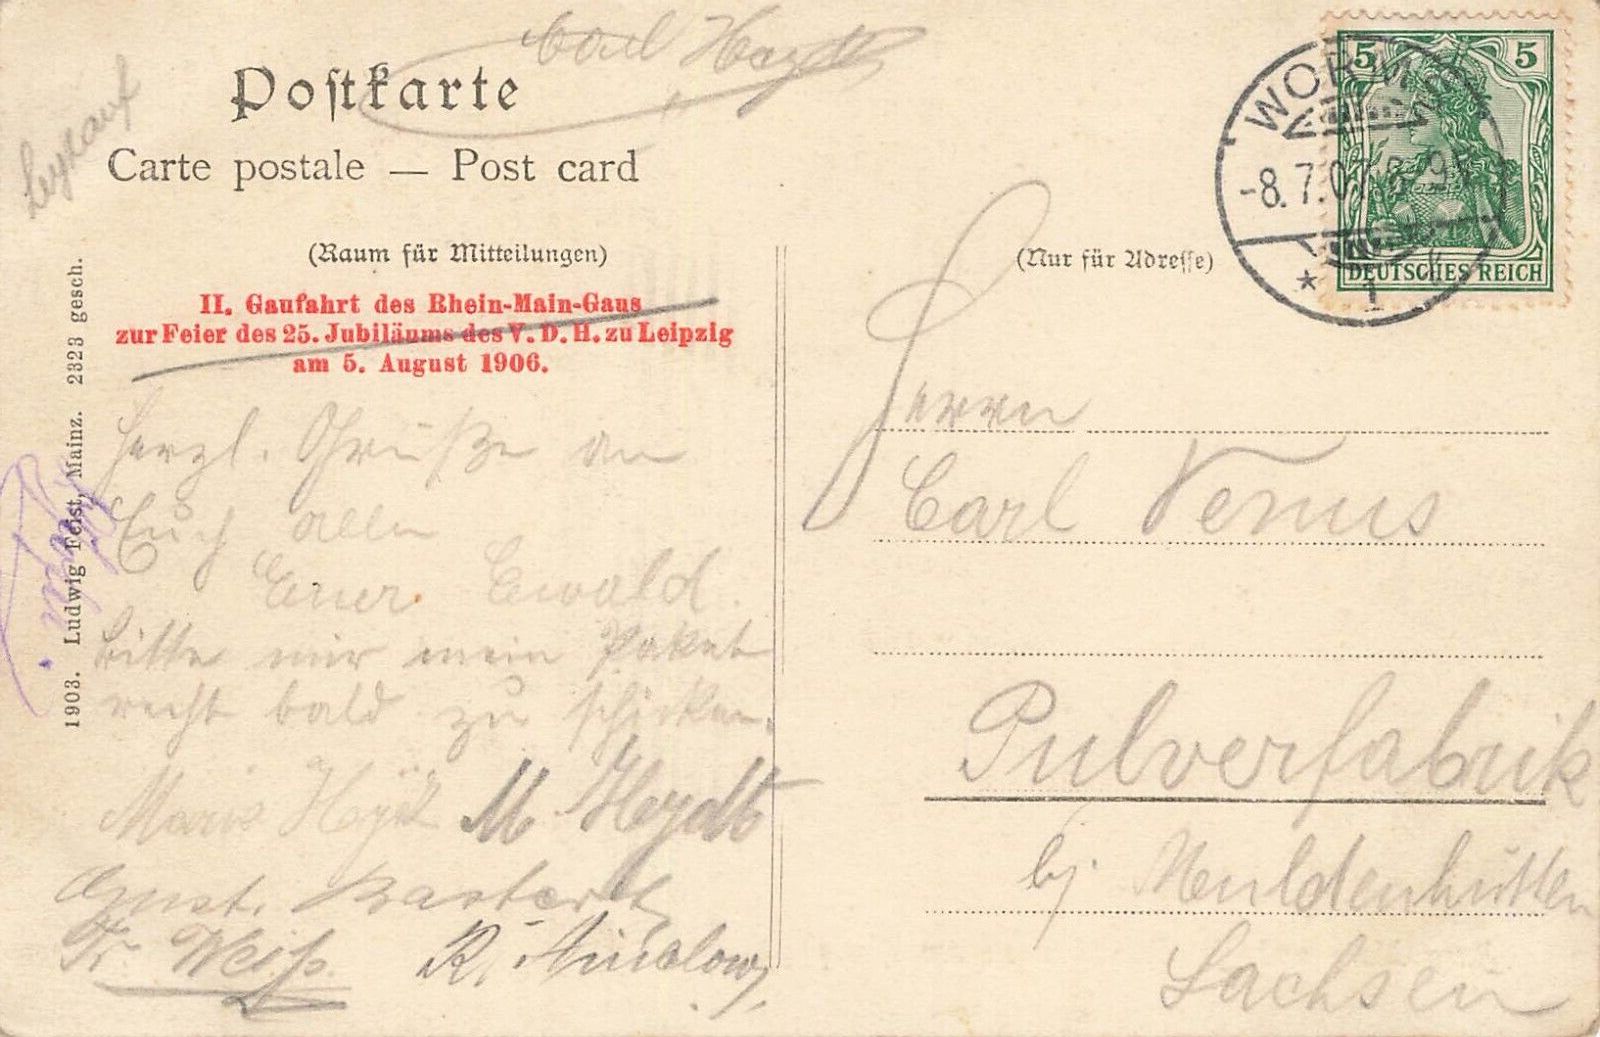 Carl Heydt
Postkarte
Carte postale — Post card
(Raum für Mitteilungen)
II. Gaufahrt des Rhein-Main-Gaus
zur Feier des 25. Jubiläums des V. D. H. zu Leipzig
am 5. August 1906.
Herzl. Grüße an
Euch allen
Euer Ewald.
bitte mir mein Paket
recht bald zu schicken.
M. Heydt
Fr. Weiß.
1903. Ludwig Feist, Mainz. 2323 gesch.
WORMS
-8.7.07.
* 1
5 5
DEUTSCHES REICH
(Nur für Adresse)
Herrn
Carl Venus
Pulverfabrik
bj. Muldenhütten
Sachsen